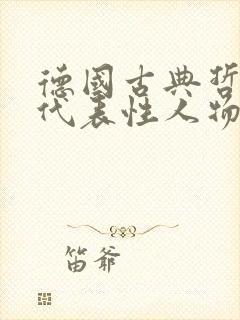 德國古典哲
代表性人物
笛爷